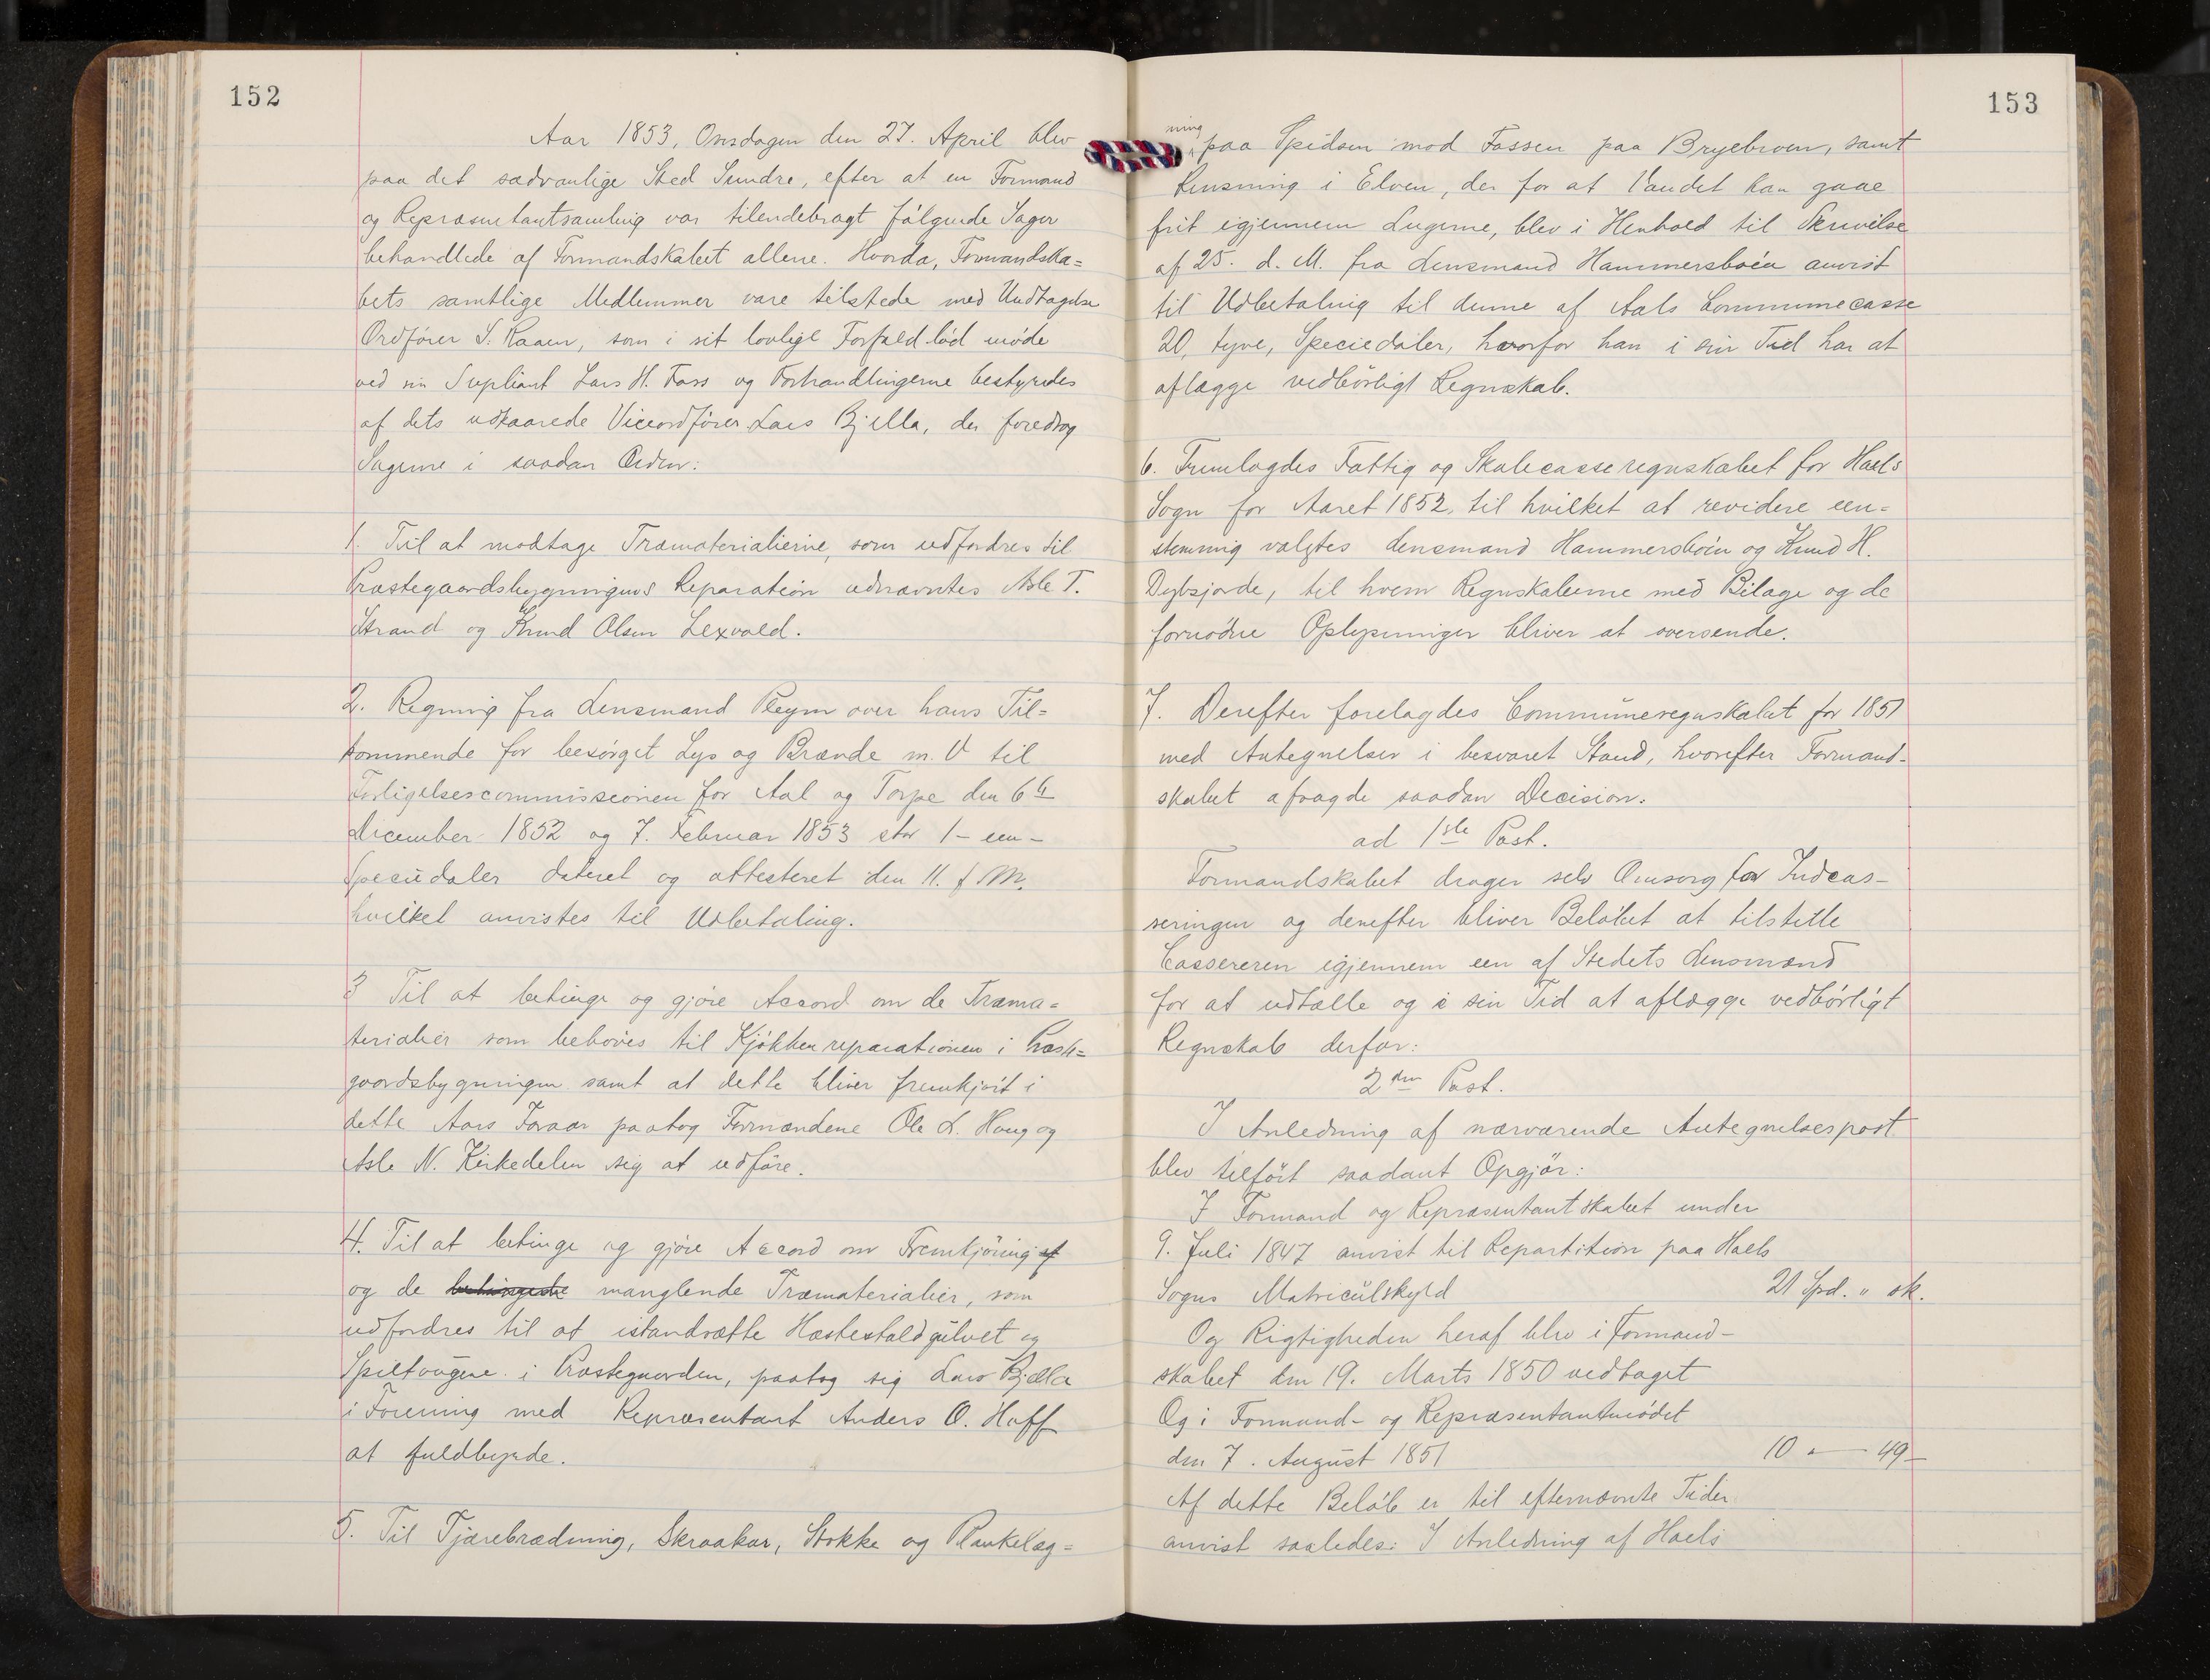 152
Aar 1853, Onsdagen den 27. April blev
paa det sædvanlige Sted Sundre, efter at en Formand
og Repræsentantsamling var tilendebragt følgende Sager
behandlede af Formandskabet allene. Hvorda, Formandska=
bets samtlige Medlemmer vare tilstede med Undtagelse
Ordfører S. Raaen, som i sit lovlige Forfald lod møde
ved sin Supliant Lars H. Foss og Forhandlingerne bestyredes
af dets udkaarede Viceordfører Lars Bjella, der foredrog
Sagerne i saadan Orden:
1. Til at modtage Træmaterialierne, som udfordres til
Præstegaardsbygningens Reparation udnævntes Asle T.
Strand og Knud Olsen Lexvold.
2. Regning fra Lensmand Pleym over hans Til=
kommende for besørget Lys og Brænde m. V til
Forligelsescommissionen for Aal og Torpe den 6te
December 1852 og 7. Februar 1853 stor 1 - een -
Speciedaler dateret og attesteret den 11. f M.
hvilket anvistes til Udbetaling.
3 Til at betinge og gjøre Accord om de Træma=
terialier som behøves til Kjøkkenreparationen i Præste=
gaardsbygningen samt at dette bliver fremkjørt i
dette Aars Foraar paatog Formændene Ole L. Haug og
Asle N. Kirkedelen sig at udføre.
4. Til at betinge og gjøre Accord om Fremkjøring af
og de betingede manglende Træmaterialier, som
udfordres til at istandsætte Hestestaldgulvet og
Spiltougene i Præstegaarden, paatog sig Lars Bjella
i Forening med Repræsentant Anders O. Hoff
at fuldbyrde.
5. Til Tjærebrædning, Skraakar, Stokke og Plankelæg=
153
ning
paa Spidsen mod Fossen paa Bryebroen, samt
Rensning i Elven, der for at Vandet kan gaae
frit igjennem Lugerne, blev i Henhold til Skrivelse
af 25. d. M. fra Lensmand Hammersbøen anvist
til Udbetaling til denne af Aals Communecasse
20, tyve, Speciedaler, hvorfor han i sin Tid har at
aflægge vedbørligt Regnskab.
6. Fremlagdes Fattig og Skolecasseregnskabet for Haels
Sogn for Aaret 1852, til hvilket at revidere een=
stemmig valgtes Lensmand Hammersbøen og Knud H.
Dybsjorde, til hvem Regnskaberne med Bilage og de
fornødne Oplysninger bliver at oversende.
7. Derefter forelagdes Communeregnskabet for 1851
med Antegnelser i besvaret Stand, hvorefter Formand-
skabet afsagde saadan Decision.
ad 1ste Post.
Formandskabet drager selv Omsorg for Indcas-
seringen og derefter bliver Beløbet at tilstille
Cassereren igjennem een af Stedets Lensmænd
for at udtælle og i sin Tid at aflægge vedbørligt
Regnskab derfor:
2den Post.
I Anledning af nærværende Antegnelsespost
blev tilført saadant Opgjør:
I Formand og Repræsentantskabet under
9. Juli 1847 anvist til Repartition paa Haels
Sogns Matriculskyld 21 Spd. " sk.
Og Rigtigheden heraf blev i Formand-
skabet den 19. Marts 1850 vedtaget
Og i Formand- og Repræsentantmødet
den 7. August 1851 10 " — 49 -
Af dette Beløb er til efternævnte Tider
anvist saaledes: I Anledning af Haels